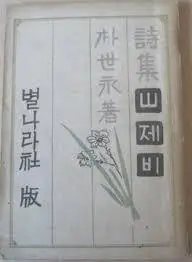 詩集 山제비
朴世永著
별나라社 版